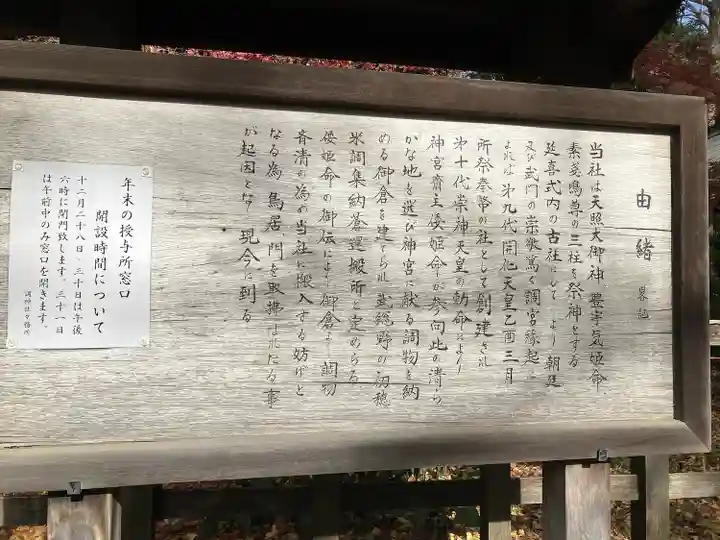 由緒 畧記
当社は天照大御神、豊宇気姫命、
素戔嗚尊の三柱を祭神とする
延喜式内の古社にして古より朝廷
及び武門の崇敬篤く調宮縁起に
よれば第九代開化天皇乙酉三月
所祭奉幣の社として創建され
第十代崇神天皇の勅命により
神宮斎主倭姫命が参向此の清ら
かな地を選び神宮に献る調物を納
める御倉を建てられ武総野の初穂
米調集納蒼運搬所と定めらる
倭姫命の御伝により御倉より調物
斉清の為め当社に搬入する妨げと
なる為鳥居、門を取拂はれたる事
が起因となり現今に到る
年末の授与所窓口
開設時間について
十二月二十八日、三十日は午後
六時に閉門致します。三十一日
は午前中のみ窓口を開きます。
調神社社務所